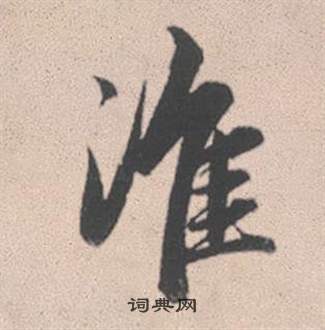 淮
词典网